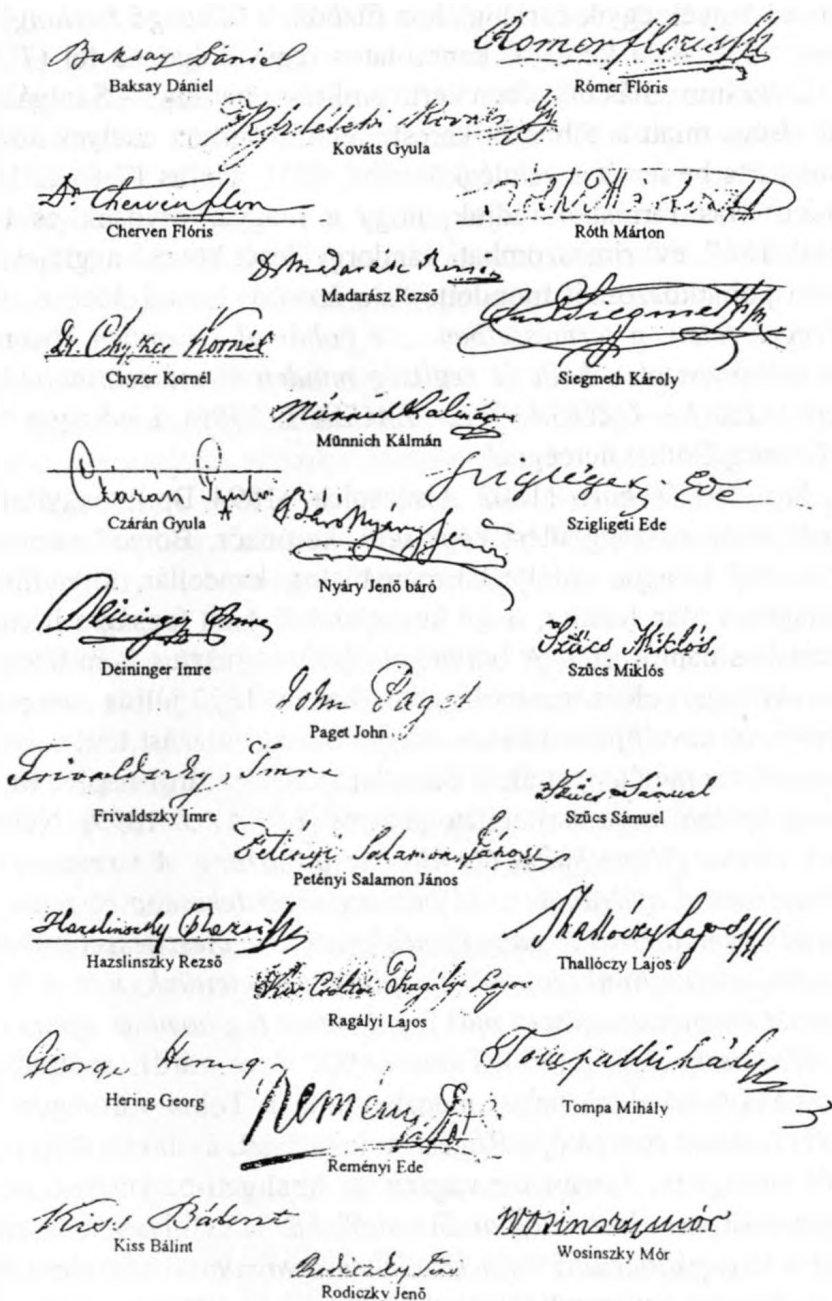 Baksay Dániel
Baksay Dániel
Rómer Flóris
Rómer Flóris
Kovács
Kováts Gyula
Dr. Cherven Flóris
Cherven Flóris
Róth Márton
Madarász Rezső
Dr. Chyzer Kornél
Chyzer Kornél
Siegmeth
Siegmeth Károly
Münnich Kálmán
Münnich Kálmán
Czárán Gyula
Czárán Gyula
Szigligeti Ede
Szigligeti Ede
Nyáry Jenő báró
Deininger Imre
Deininger Imre
Szűcs Miklós,
Szűcs Miklós
John Paget
Paget John
Frivaldszky Imre
Frivaldszky Imre
Szűcs Sámuel
Szűcs Sámuel
Petényi Salamon János
Petényi Salamon János
Hazslinszky Rezső
Hazslinszky Rezső
Thallóczy Lajos
Thallóczy Lajos
Ragályi Lajos
Ragályi Lajos
George Hering
Hering Georg
Tompa Mihály
Tompa Mihály
Reményi Ede
Reményi Ede
Kiss Bálint
Kiss Bálint
Wosinszky Mór
Wosinszky Mór
Rodiczky Jenő
Rodiczky Jenő